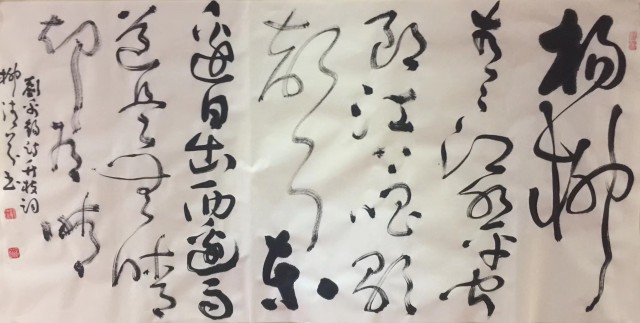 楊柳
青々江水平闻
郎江上唱歌
聲东
邊日出西邊雨
道是無晴
却有晴
劉禹錫詩竹枝词
柳清书